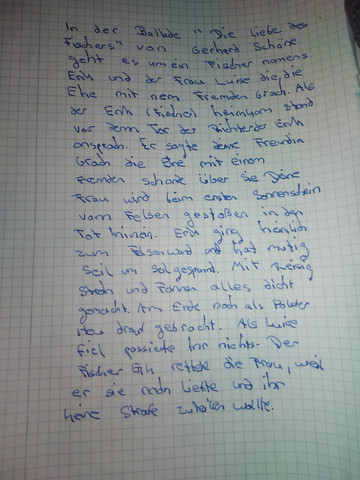 In der Ballade "Die Liebe des
Fischers" von Gerhard Schöne
geht es um ein Fischer namens
Erik und der Frau Luise die, die
Ehe mit nem Fremden brach. Als
der Erik (Fischer) heimkam stand
vor dem Tor der Richter der Erik
ansprach. Er sagte deine Freundin
brach die Ehe mit einem
Fremden schande über sie Deine
Frau wird beim ersten Sonnenschein
vom Felsen gestoßen in den
Tot hinein. Erik ging heimlich
zum Felsenwand und hat mutig
Seil um Seil gespannt. Mit Reisig
Stroh und Farnen alles dicht
gemacht. Am Ende noch als Polster
Heu drauf gebracht. Als Luise
fiel passierte ihr nichts. Der
Fischer Erik rettete die Frau, weil
er sie noch liebte und ihr
keine Strafe zuteilen wollte.